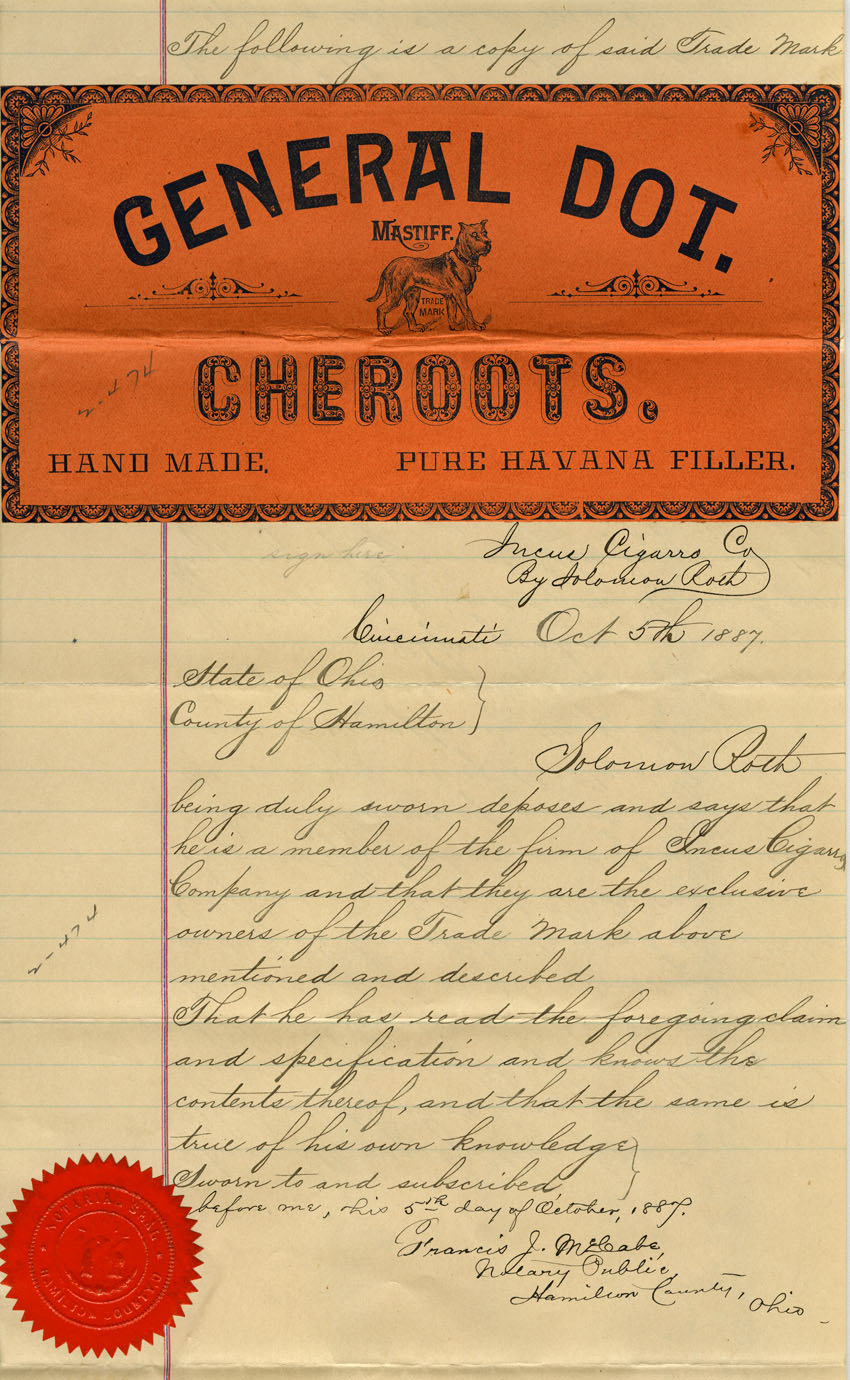 The following is a copy of said Trade Mark
GENERAL DOT.
MASTIFF.
TRADE
MARK
CHEROOTS.
2-474
HAND MADE. PURE HAVANA FILLER.
sign here
Incus Cigarro Co
By Solomon Roth
Cincinnati Oct 5th 1887.
State of Ohio
County of Hamilton
Solomon Roth
being duly sworn deposes and says that
he is a member of the firm of Incus Cigarro
Company and that they are the exclusive
owners of the Trade Mark above
2-474
mentioned and described
That he has read the foregoing claim
and specification and knows the
contents thereof, and that the same is
true of his own knowledge
Sworn to and subscribed
before me, this 5th day of October, 1887.
Francis J. McCabe,
Notary Public,
Hamilton County, Ohio
NOTARIAL SEAL
HAMILTON COUNTY O